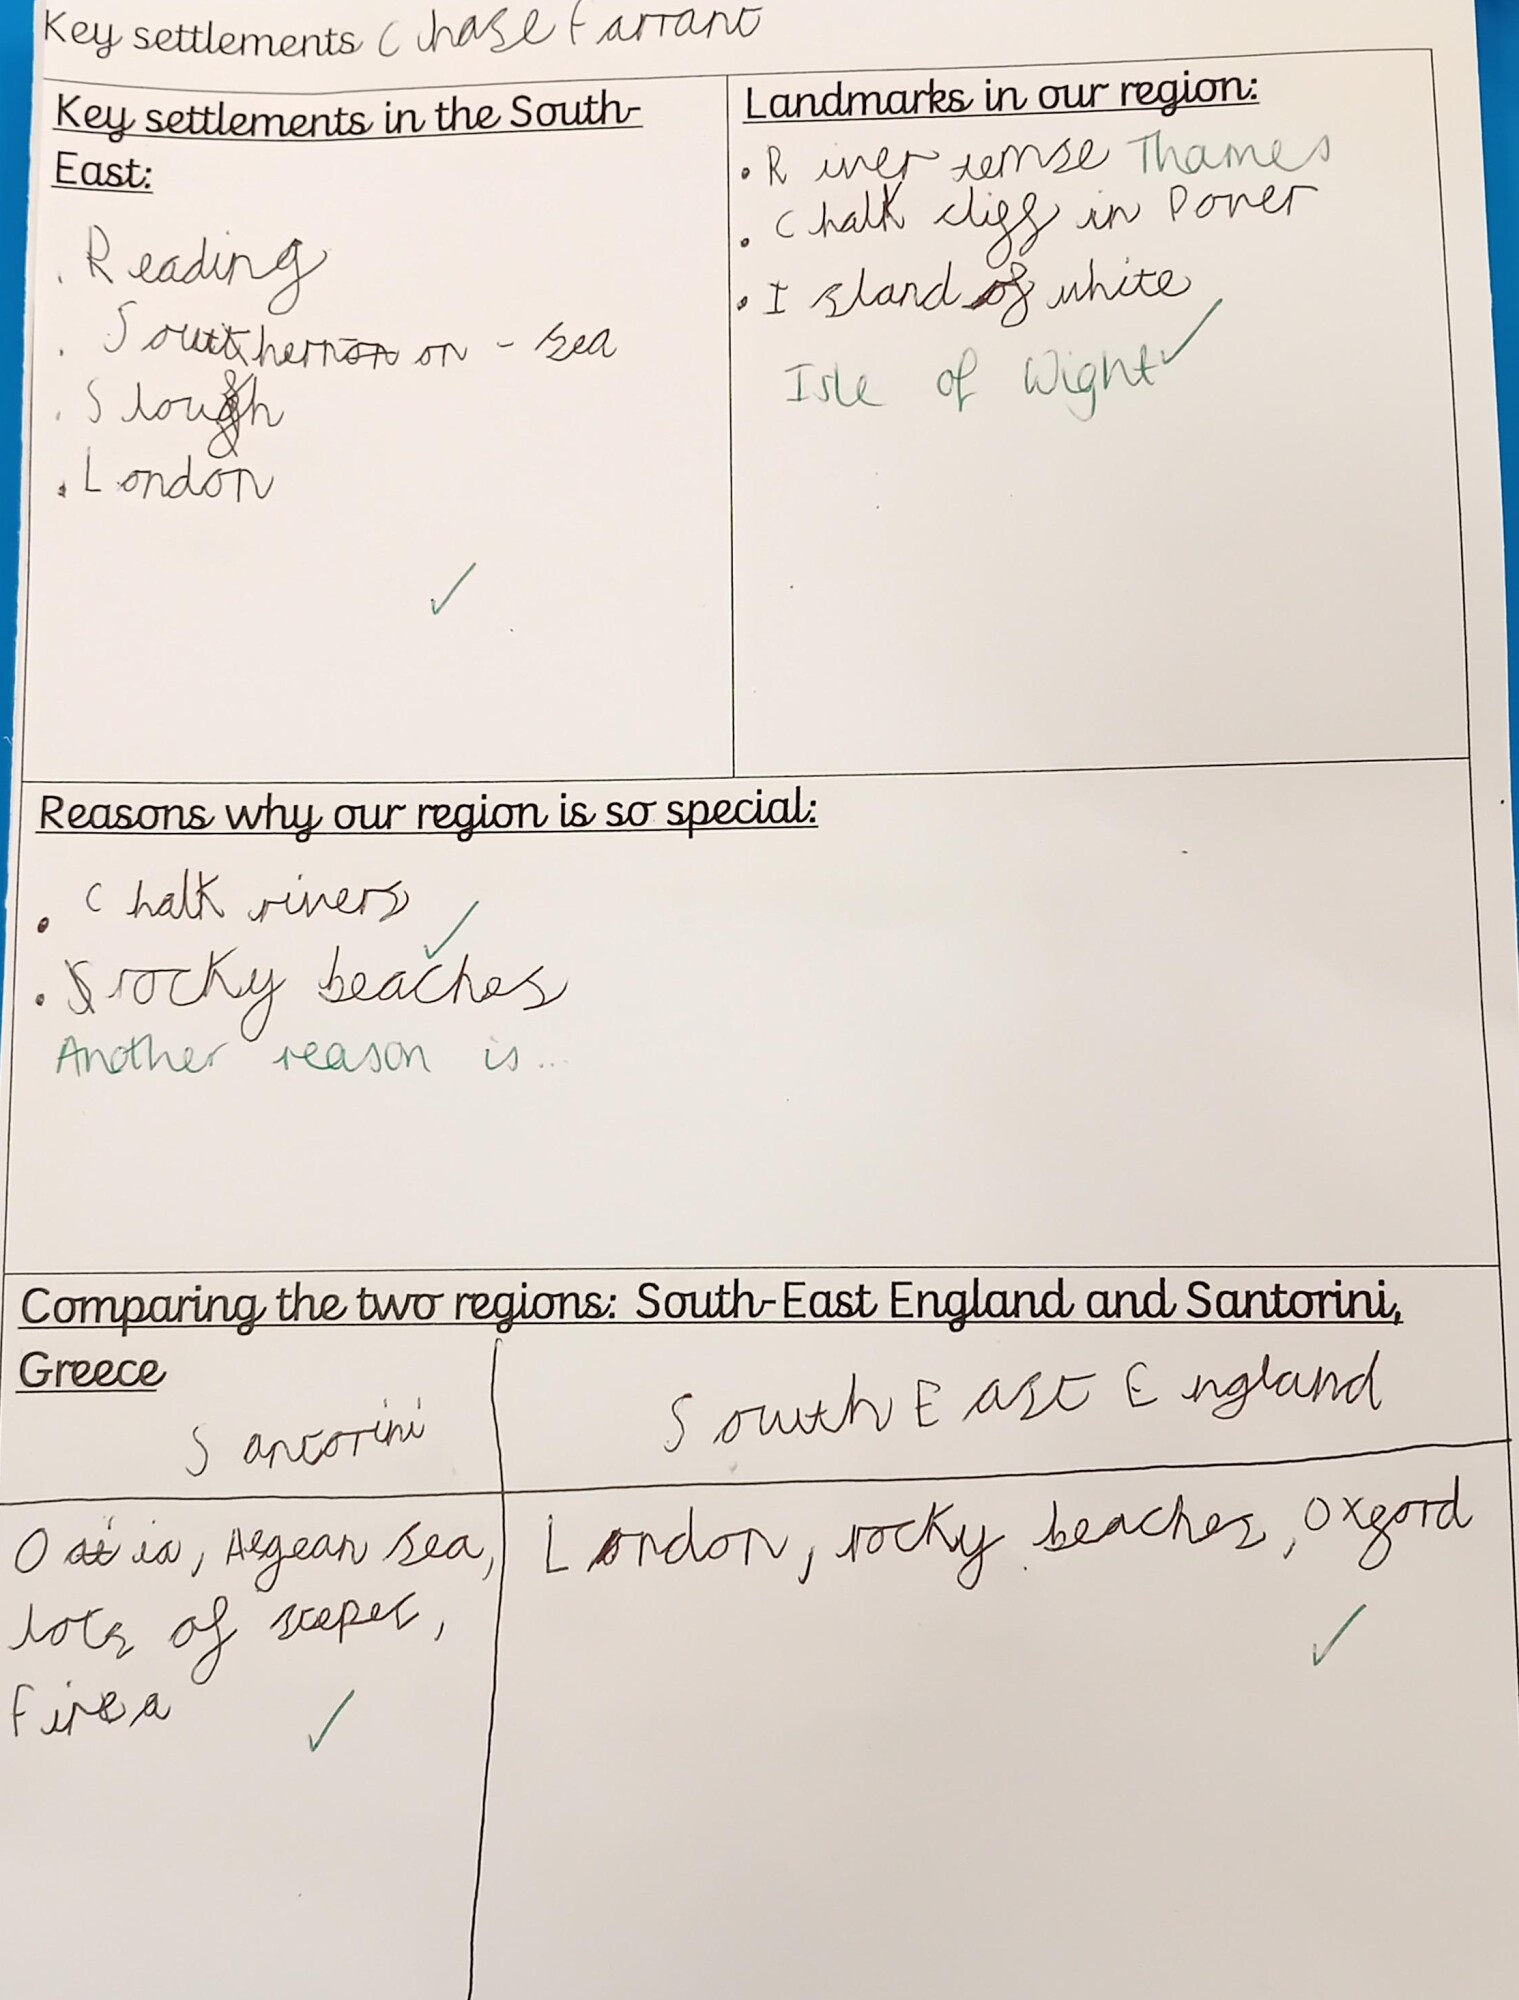 Key settlements Chase Farrant
Key settlements in the South-
East:
. Reading
. Southernon on - sea
. Slough
. London
Landmarks in our region:
• River temse Thames
• Chalk cliff in Dover
• Island of white
Isle of Wight ✓
✓
Reasons why our region is so special:
• Chalk rivers
✓
• rocky beaches
Another reason is...
Comparing the two regions: South-East England and Santorini,
Greece
Santorini
South East England
Oia, Aegean sea,
lots of stepes,
Firea
✓
London, rocky beaches, Oxford
✓